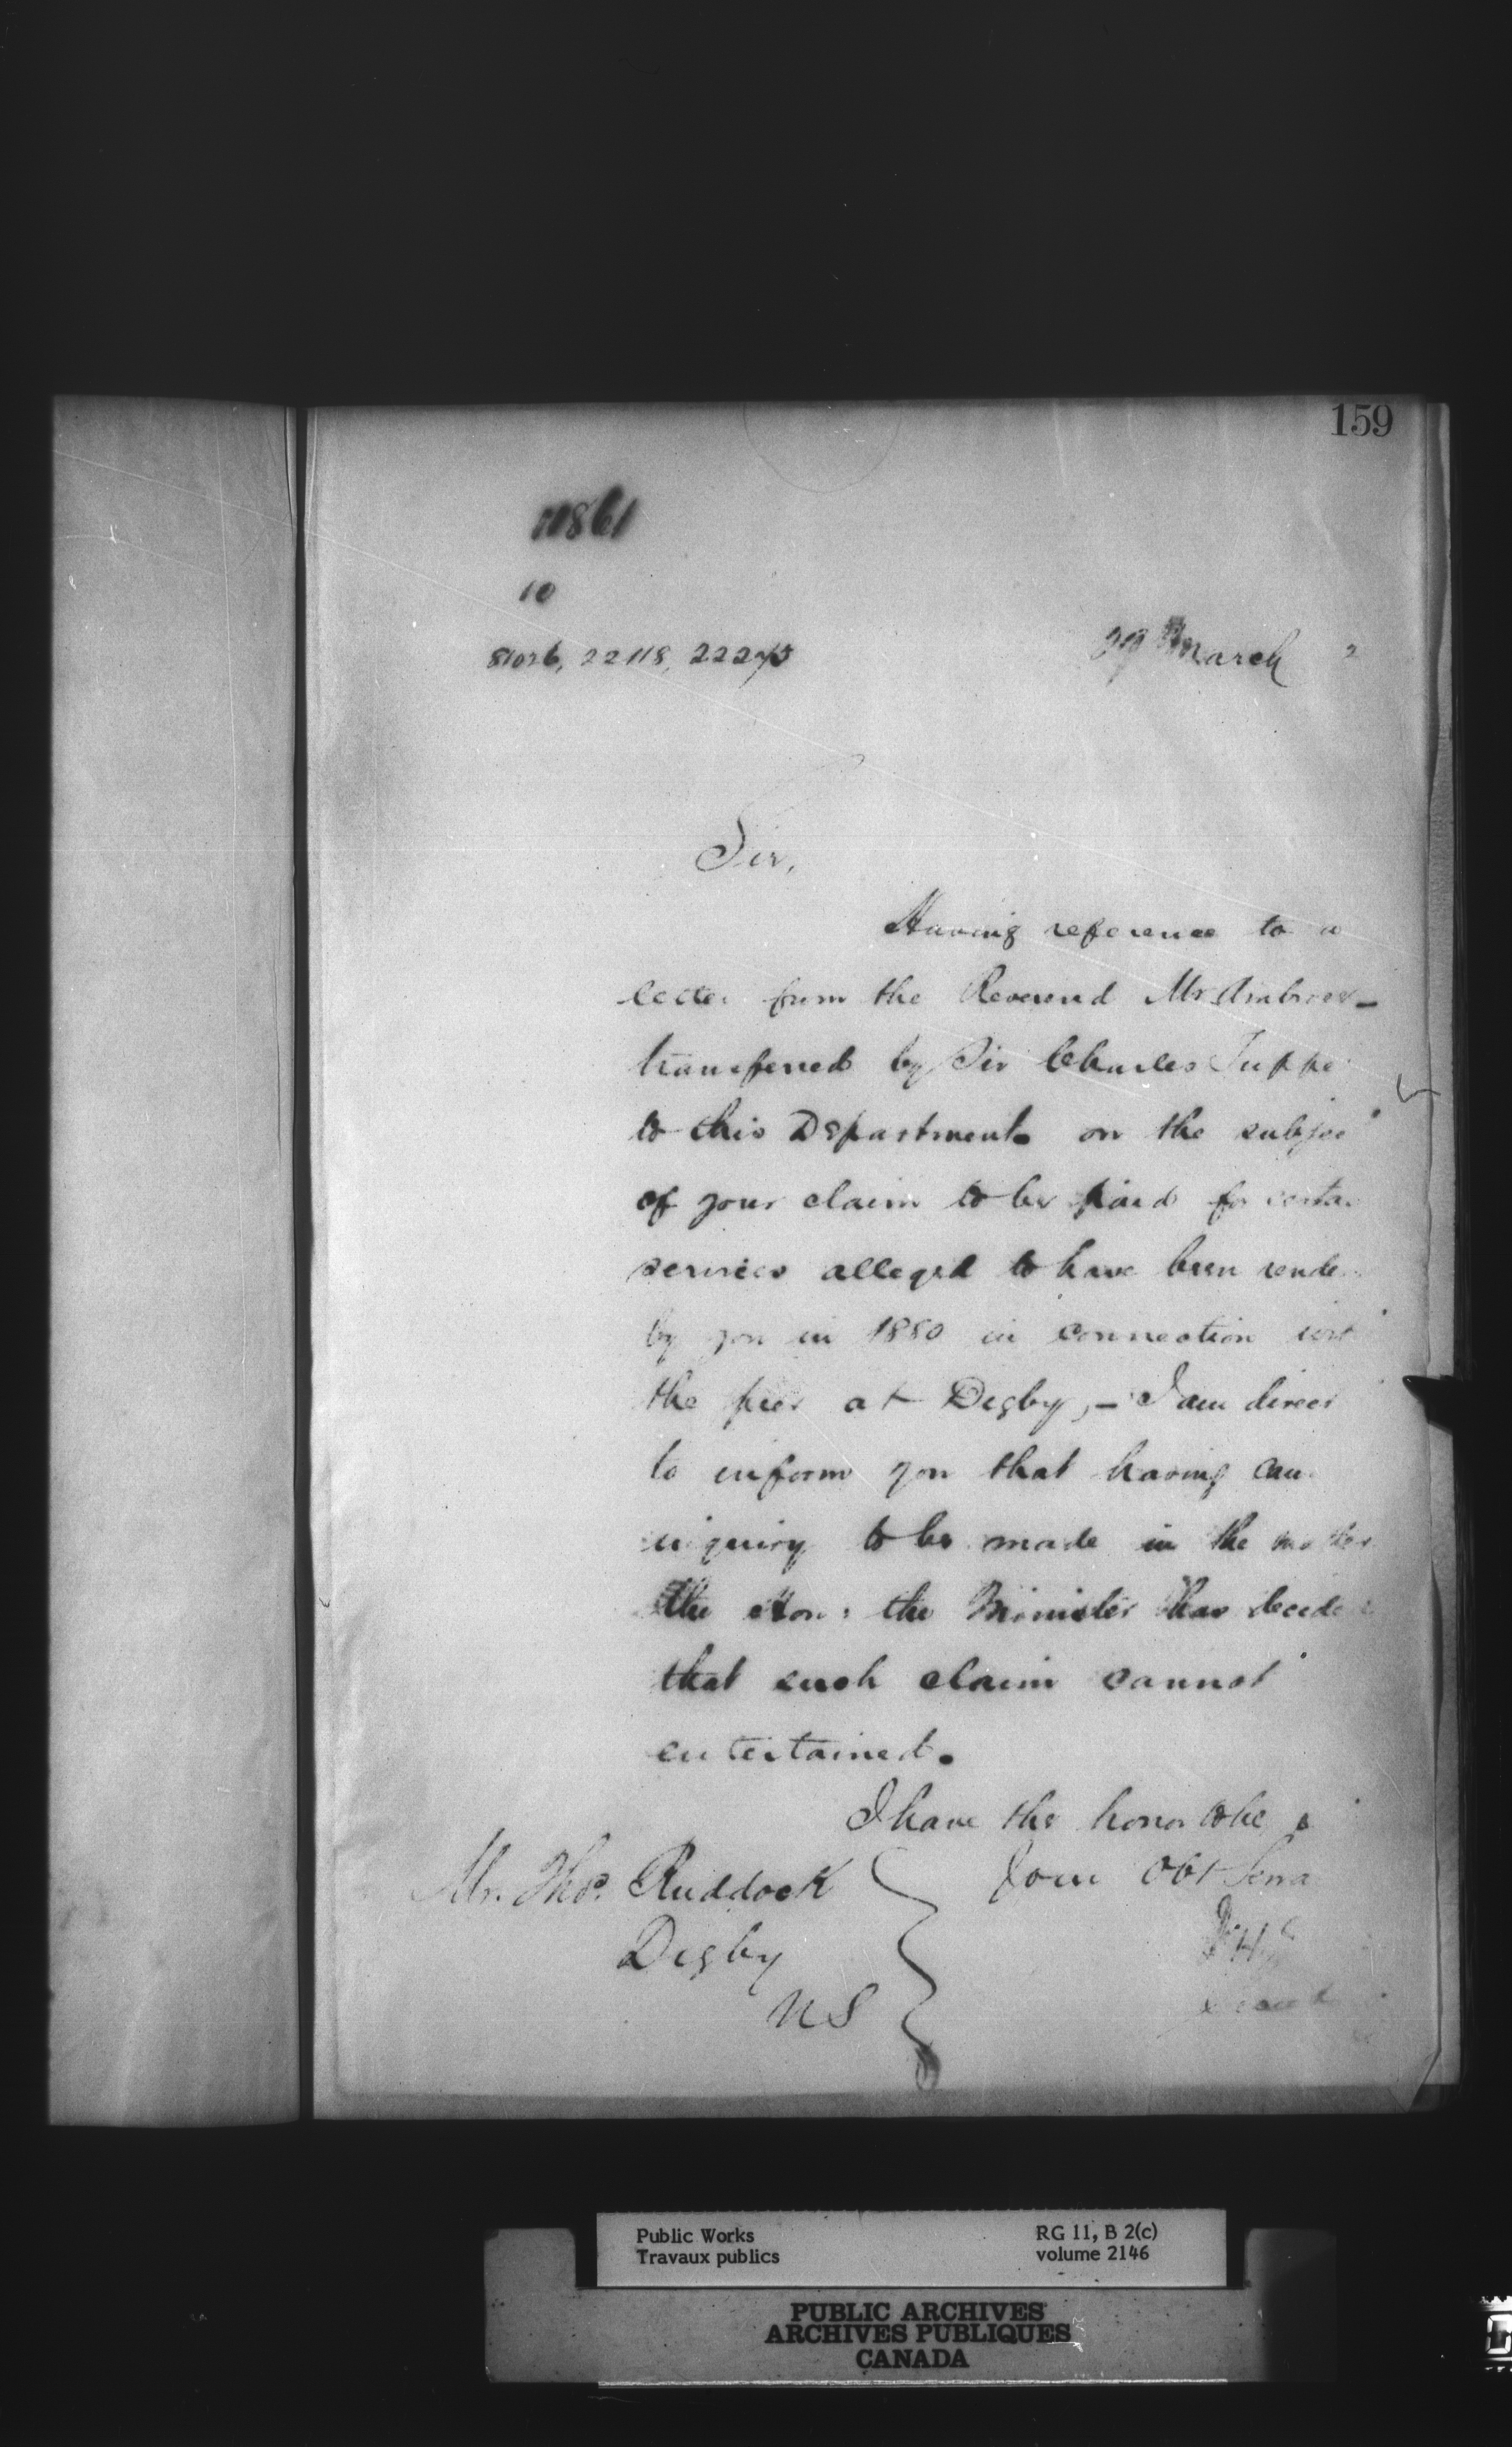 159
11861
10
81026, 22118, 22275
29th March 2
Sir,
Having reference to a
letter from the Reverend Mr Ambrose
transferred by Sir Charles Tuppe
to this Department on the subjec
of your claim to be paid for certa
services alleged to have been rende
by you in 1880 in connection wit
the pier at Digby, – I am direct
to inform you that having cau
inquiry to be made in the matter
the Hon: the Minister has decide
that such claim cannot
entertained.
I have the honor to be
Your Obt Serva
Mr. Thos. Ruddock
Digby
NS
Public Works
Travaux publics
RG 11, B 2(c)
volume 2146
PUBLIC ARCHIVES
ARCHIVES PUBLIQUES
CANADA